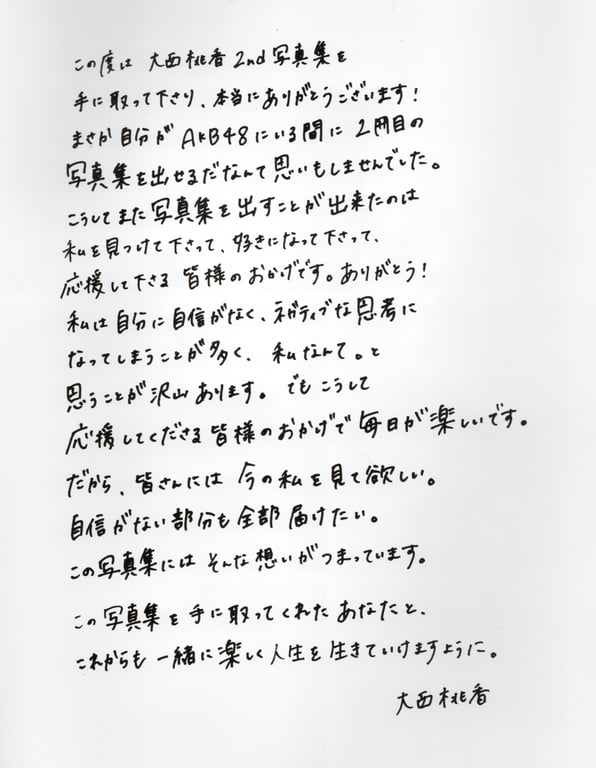 この度は 大西桃香 2nd写真集を
手に取って下さり、本当にありがとうございます!
まさか自分が AKB48にいる間に 2冊目の
写真集を出せるだなんて思いもしませんでした。
こうしてまた写真集を出すことが出来たのは
私を見つけて下さって、好きになって下さって、
応援して下さる 皆様のおかげです。ありがとう!
私は自分に自信がなく、ネガティブな思考に
なってしまうことが多く、私なんて。と
思うことが沢山あります。でもこうして
応援してくださる皆様のおかげで毎日が楽しいです。
だから、皆さんには 今の私を見て欲しい。
自信がない部分も全部届けたい。
この写真集には そんな想いがつまっています。
この写真集を手に取ってくれたあなたと、
これからも一緒に楽しく人生を生きていけますように。
大西桃香